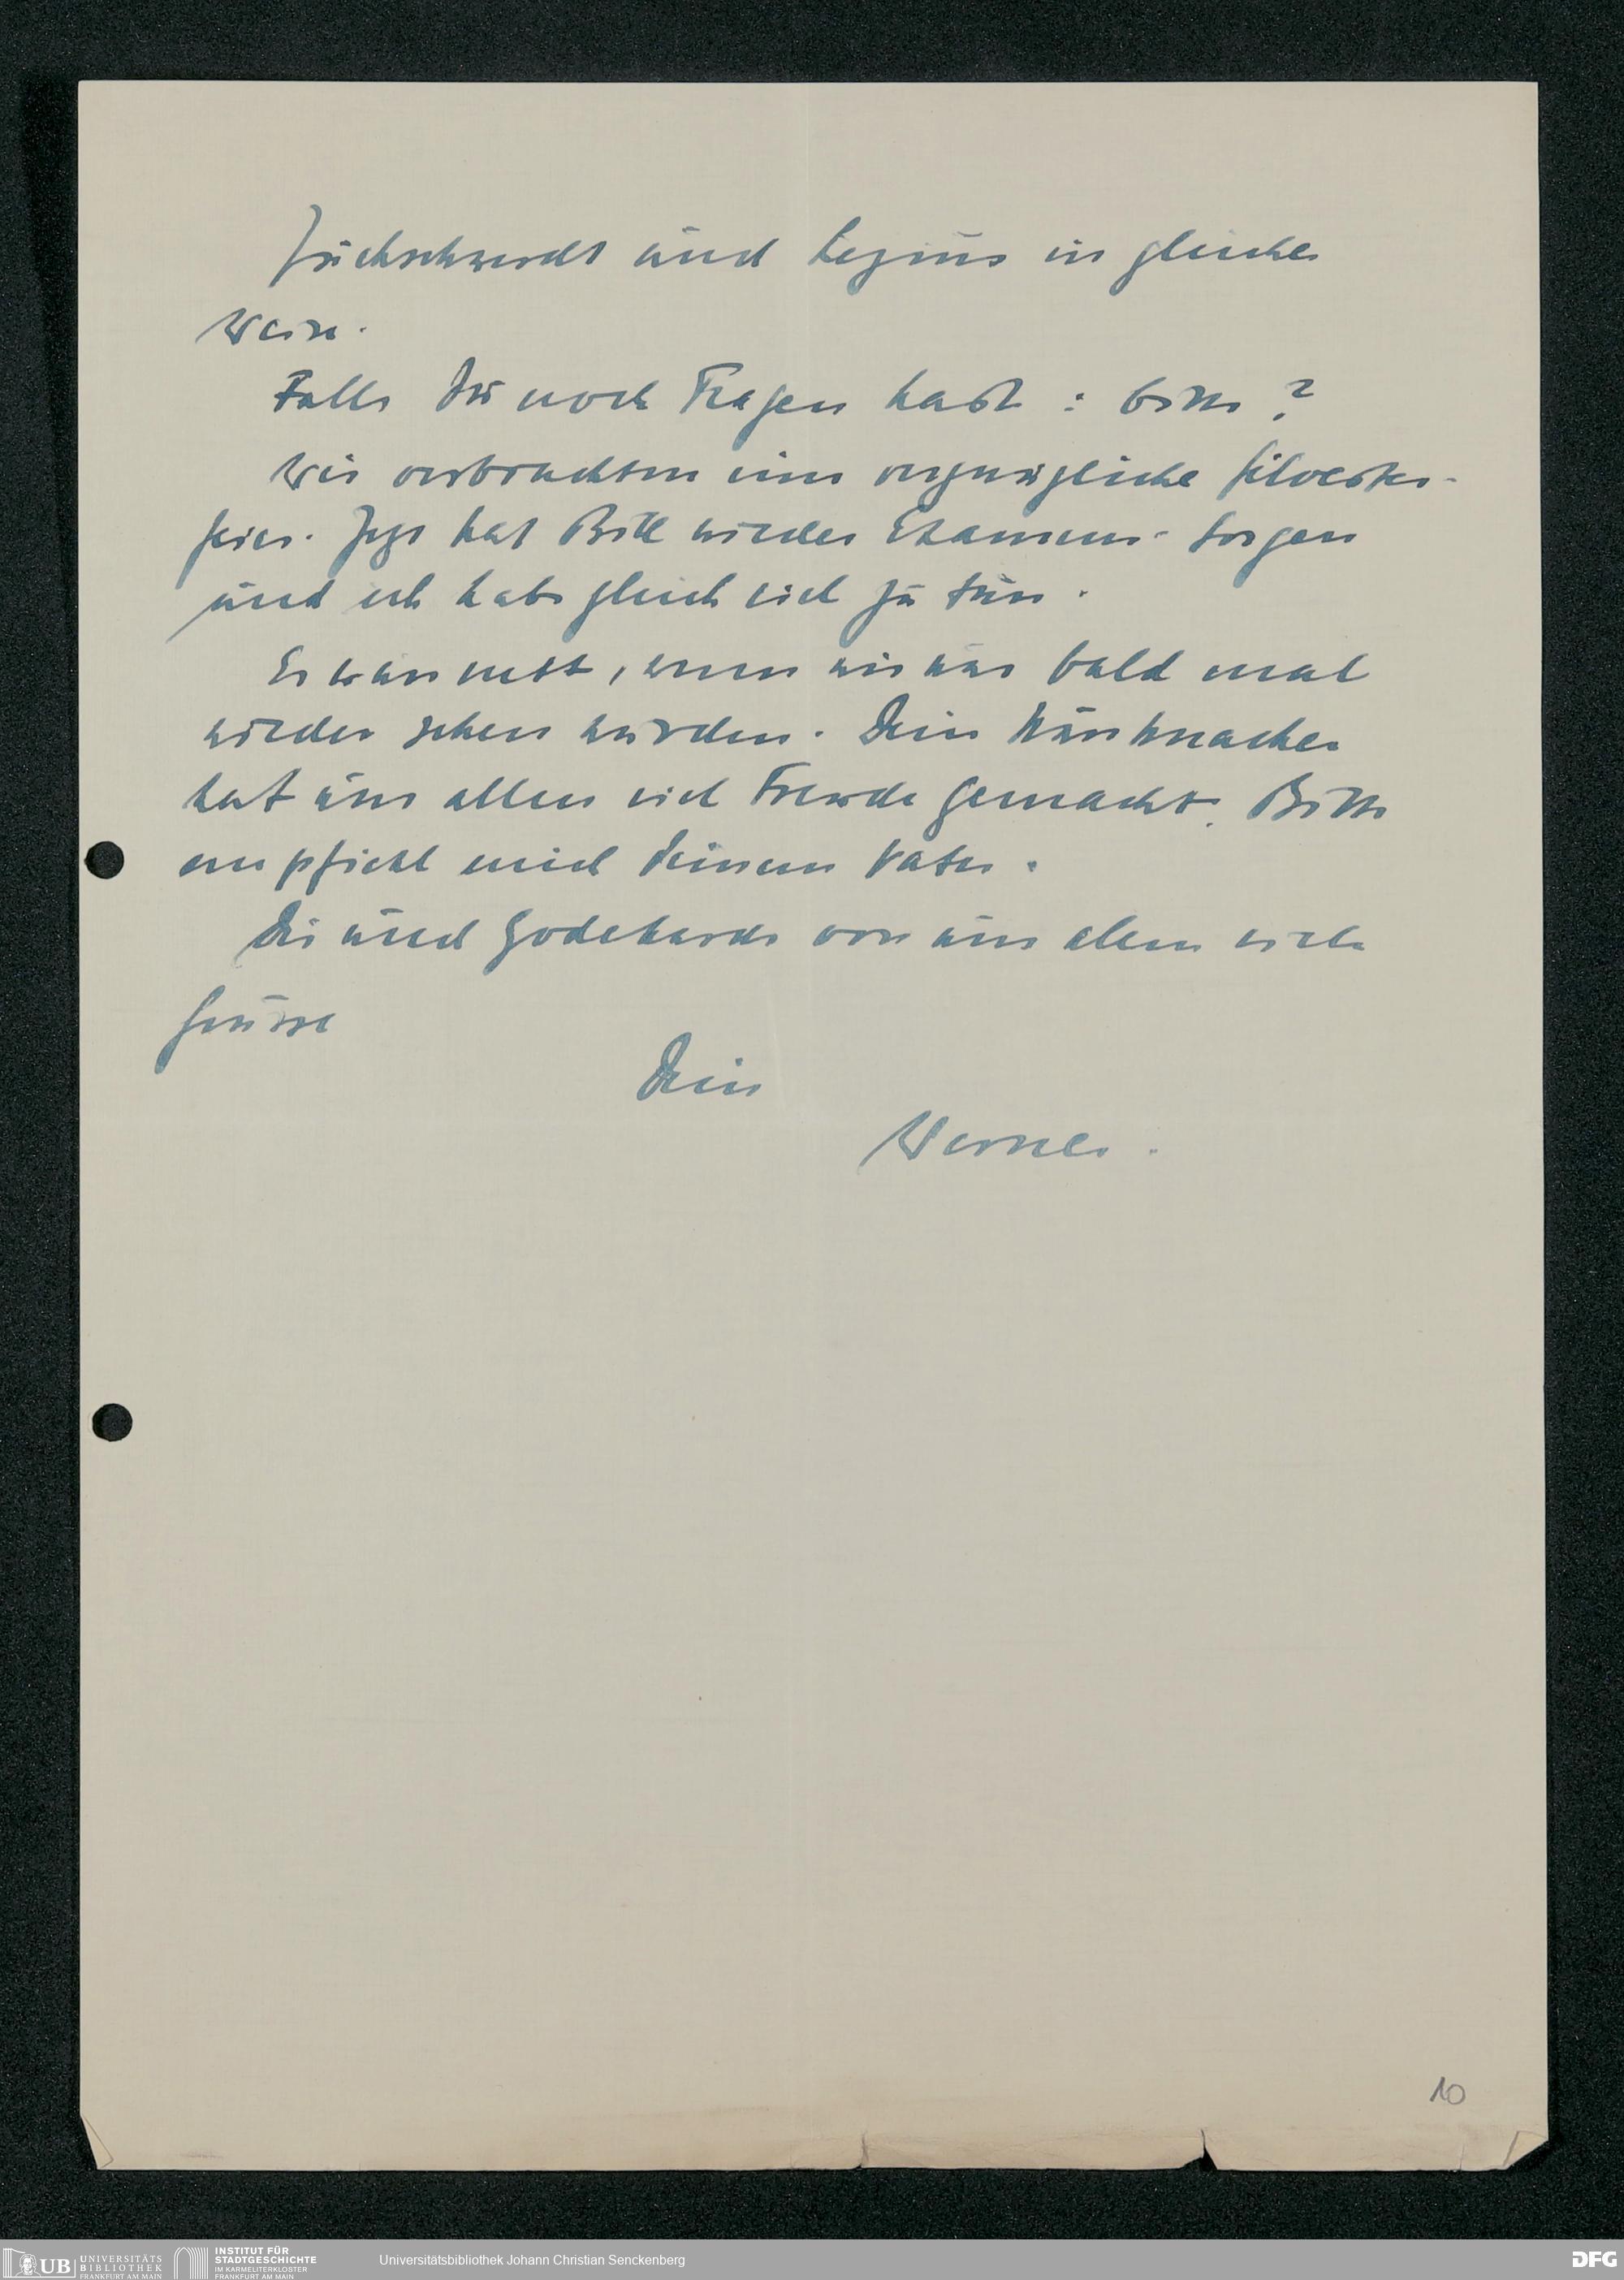 Zuckschwerdt und Lezius in gleicher
Weise.
Falls Du noch Fragen hast : bitte ?
Wir verbrachten eine vergnügliche Silvester-
feier. Jetzt hat Bill wieder Examens-Sorgen
und ich habe gleich viel zu tun.
Es wäre nett, wenn wir uns bald mal
wieder sehen würden. Dein
hat uns allen viel Freude gemacht. Bitte
empfiehl mich Deinem Vater.
Dir und Godehards von uns allen viele
Grüsse
Dein
Werner.
10
UB UNIVERSITÄTS
BIBLIOTHEK
FRANKFURT AM MAIN
INSTITUT FÜR
STADTGESCHICHTE
IM KARMELITERKLOSTER
FRANKFURT AM MAIN
Universitätsbibliothek Johann Christian Senckenberg
DFG